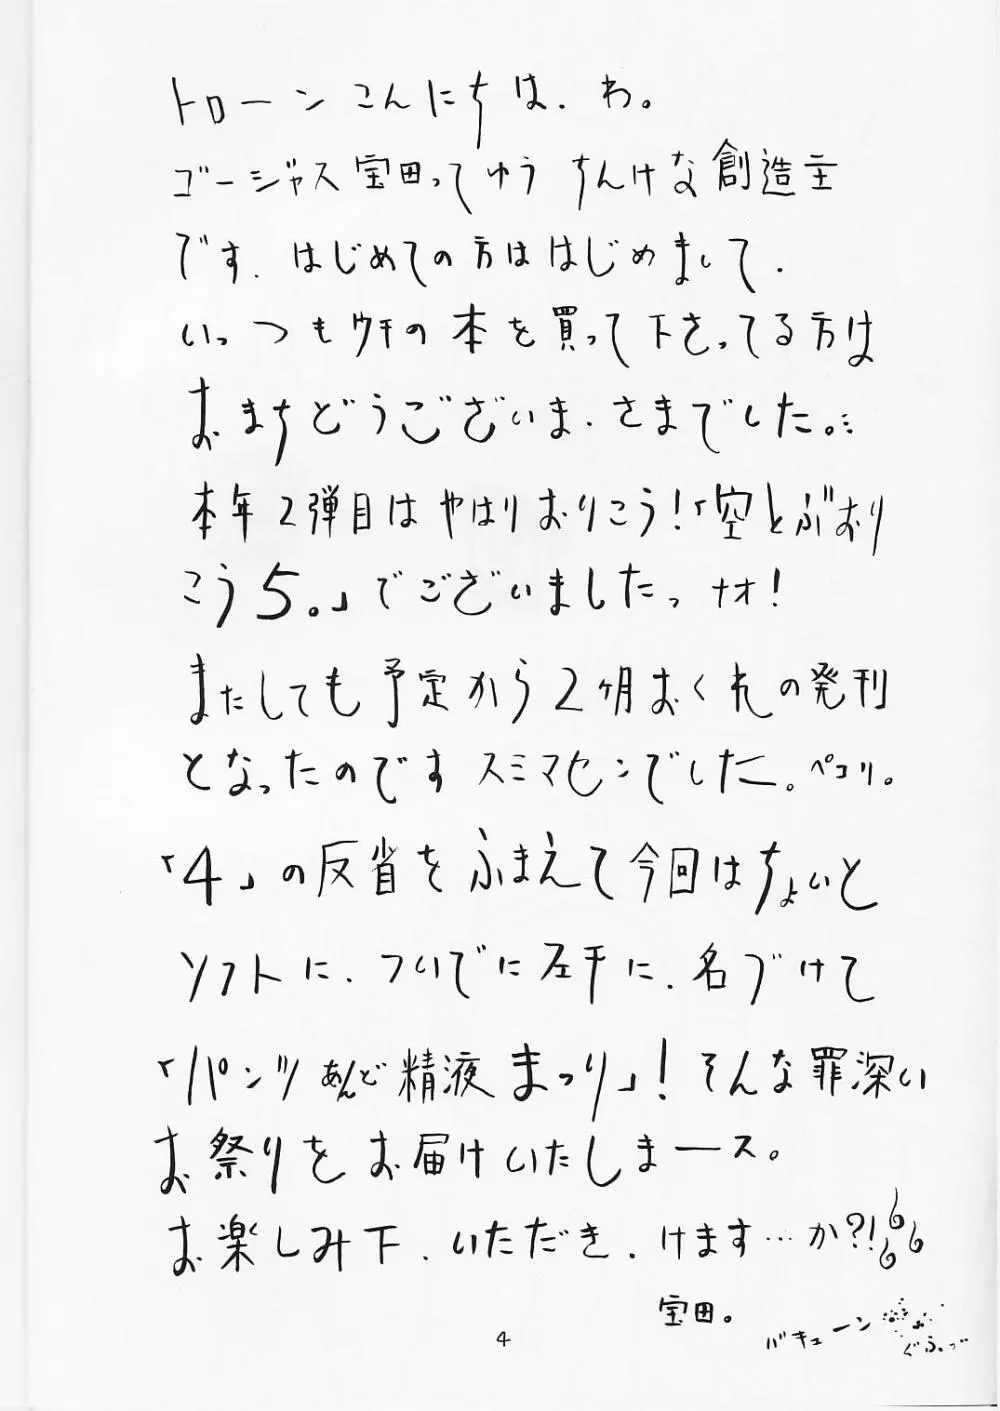 トローン こんにちは、わ。
ゴージャス宝田ってゆう ちんけな創造主
です、はじめての方ははじめまして、
いっつもウチの本を買って下さってる方は
おまちどうございま、さまでした。
本年2弾目はやはりおりこう!「空とぶおり
こう5。」でございましたっ ナオ!
またしても予定から2ヶ月おくれの発刊
となったのです スミマセンでした。ペコリ。
「4」の反省をふまえて今回はちょいと
ソフトに、ついでに左手に、名づけて
「パンツあんど精液まつり」! そんな罪深い
お祭りをお届けいたしまース。
お楽しみ下、いただき、けます…か?!
宝田。
バキューン
ぐふっ
4